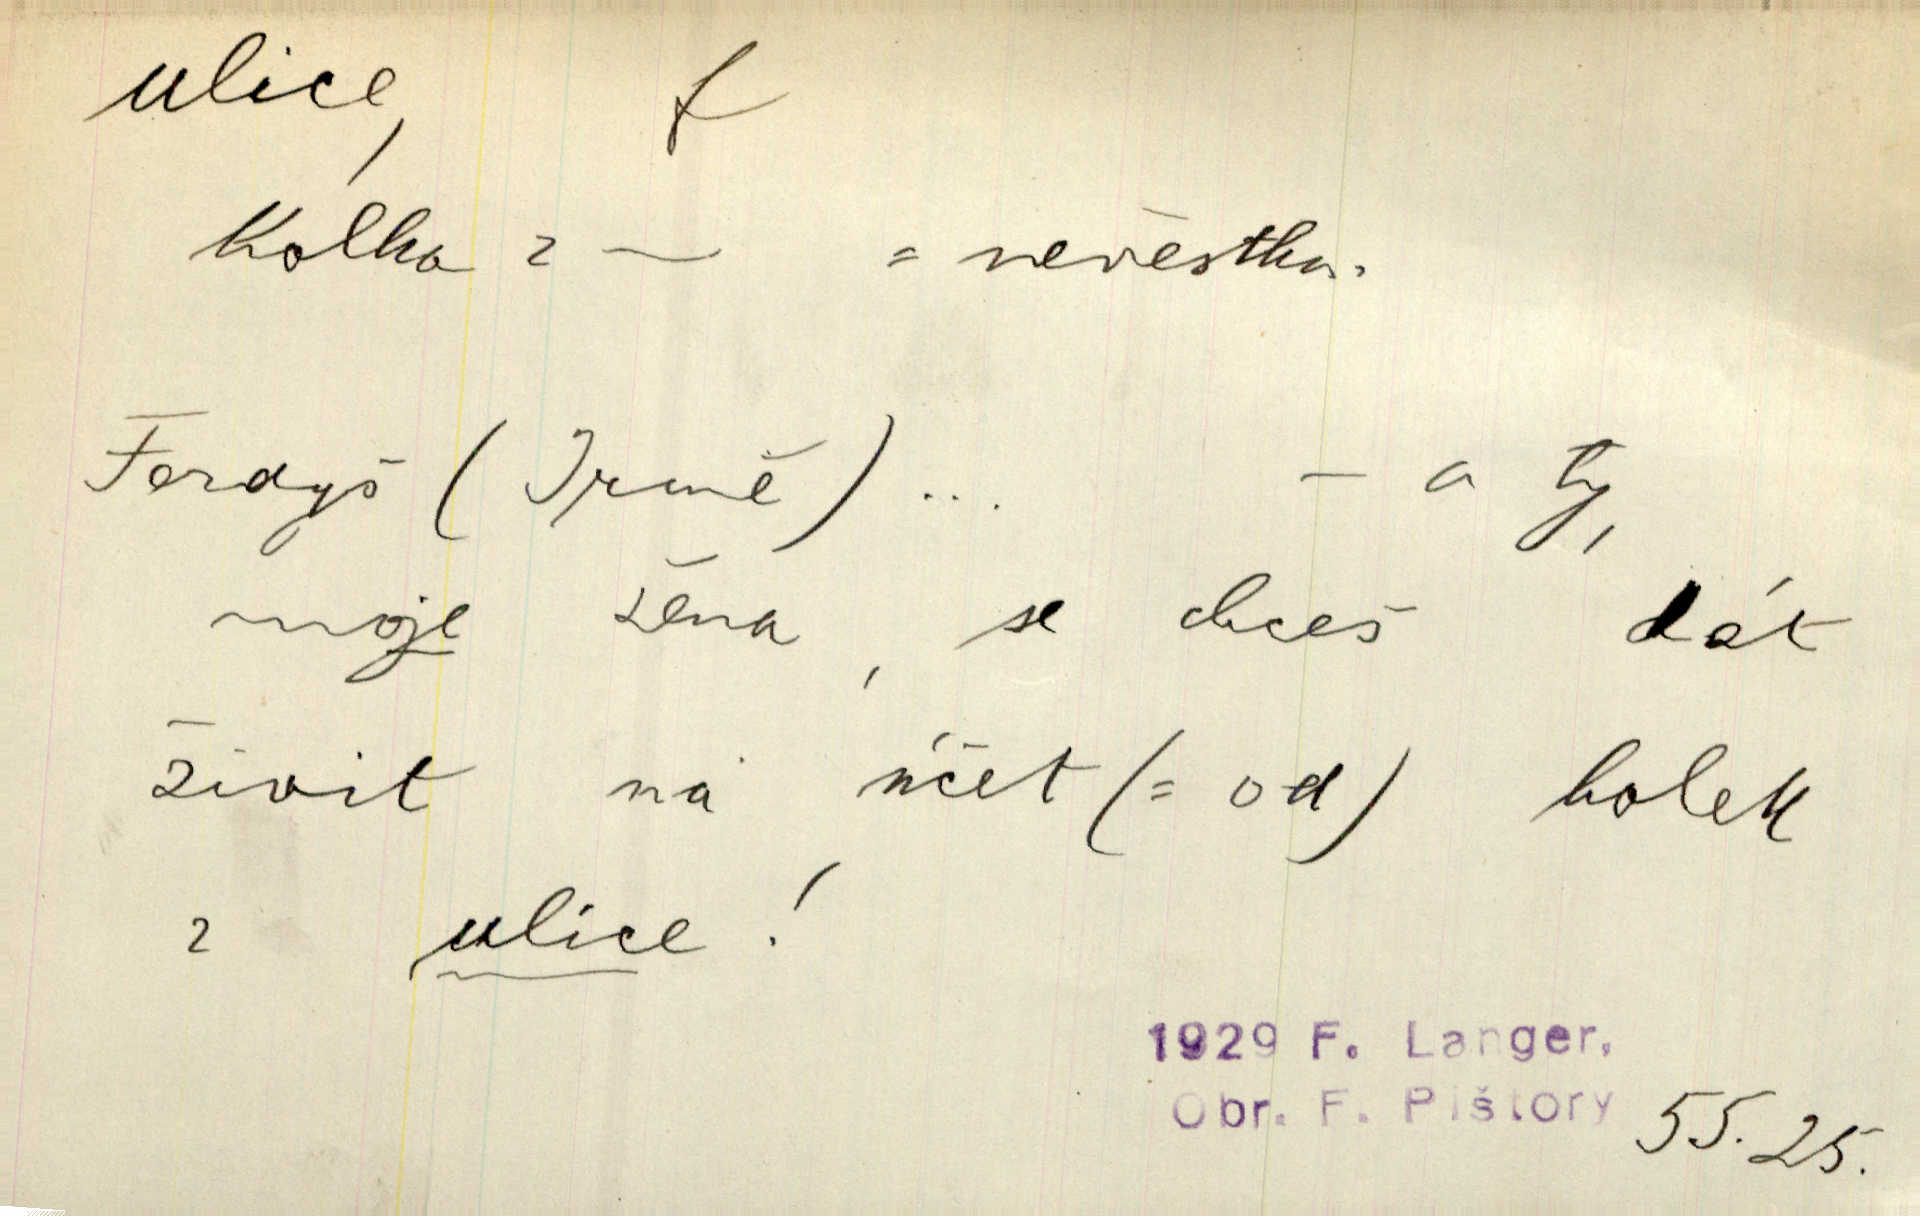 ulice, f
Holka z — = nevěstka.
Ferdyš (Irmě) ... – a ty,
moje žena, se chceš dát
živit na účet (= od) holek
z ulice!
1929 F. Langer.
Obr. F. Pištory 55.25.